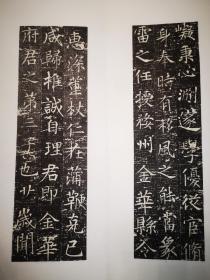 嶷秉心渊邃學優從宦脩
身奉時有移風之能當象
雷之任授婺州金華縣令
惠深葦杖仁在蒲鞭克己
咸歸推誠自理君即金華
府君之第三子也廿歲閒